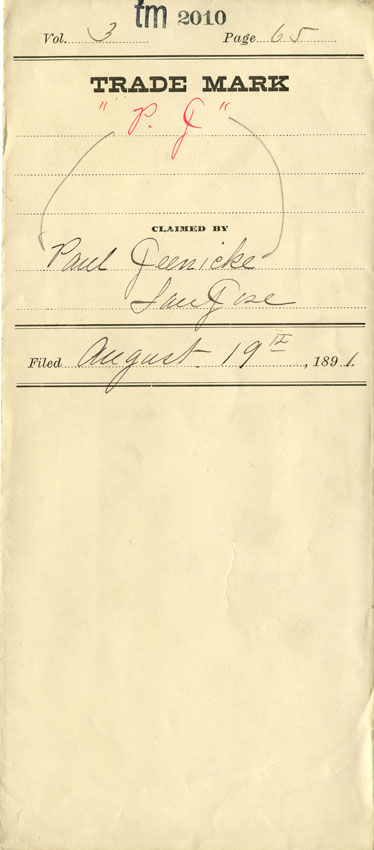 tm 2010
Vol. 3 Page 65
TRADE MARK
"P. J"
CLAIMED BY
Paul Jeenicke
San Jose
Filed August 19th, 1891.